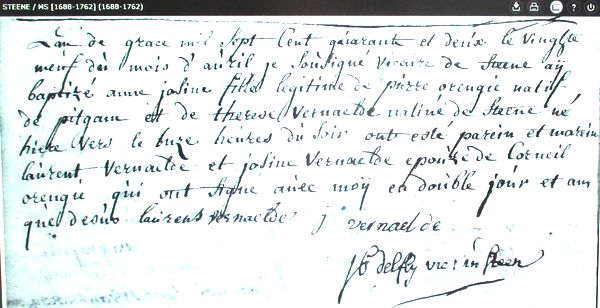 STEENE / MS [1688-1762] (1688-1762)
Lan de grace mil sept Cent quarante et deux le vingte
neuf du mois d'avril je soûsigné vicaire de steene aÿ
baptizé anne josine fille legitime de pierre orengie natif
de pitgam et de therese vernaelde native de steene né
hiere vers le onze heures du soir ont esté parein et marein
laurent vernaelde et josine vernaelde epouze de Corneil
orengié qui ont signe avec moÿ en double joúr et an
que desús laurens vernaelde j vernaelde
vic: in steen